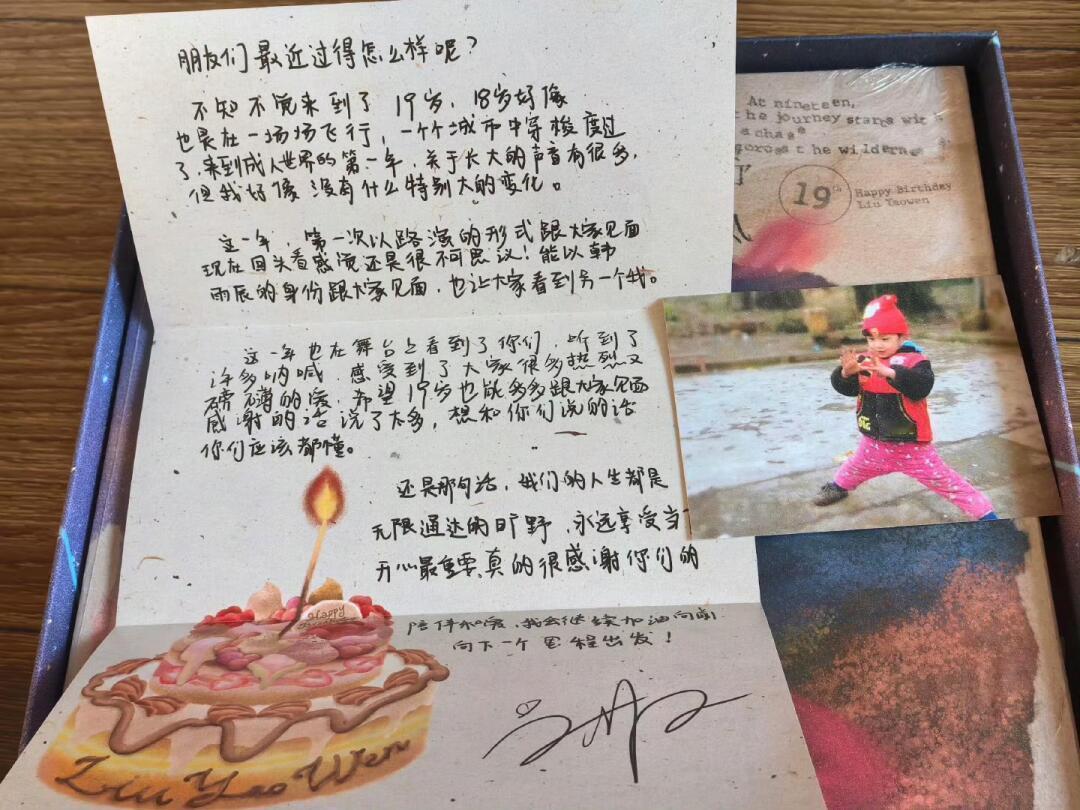 朋友们最近过得怎么样呢？
不知不觉来到了 19岁，18岁好像
也是在一场场飞行，一个个城市中穿梭度过
了，来到成人世界的第一年，关于长大的声音有很多，
但我好像没有什么特别大的变化。
这一年，第一次以路演的形式跟大家见面
现在回头看感觉还是很不可思议！能以韩
雨辰的身份跟大家见面，也让大家看到另一个我。
这一年也在舞台上看到了你们，听到了
许多呐喊，感受到了大家很多热烈又
磅礴的爱，希望19岁也能多多跟大家见面
感谢的话说了太多，想和你们说的话
你们应该都懂。
还是那句话，我们的人生都是
无限通达的旷野，永远享受当
开心最重要，真的很感谢你们的
陪伴和爱，我会继续加油向前
向下一个里程出发！
Happy
Liu Yao Wen
At nineteen,
the journey starts with
a chase
across the wilderness
19th
Happy Birthday
Liu Yaowen